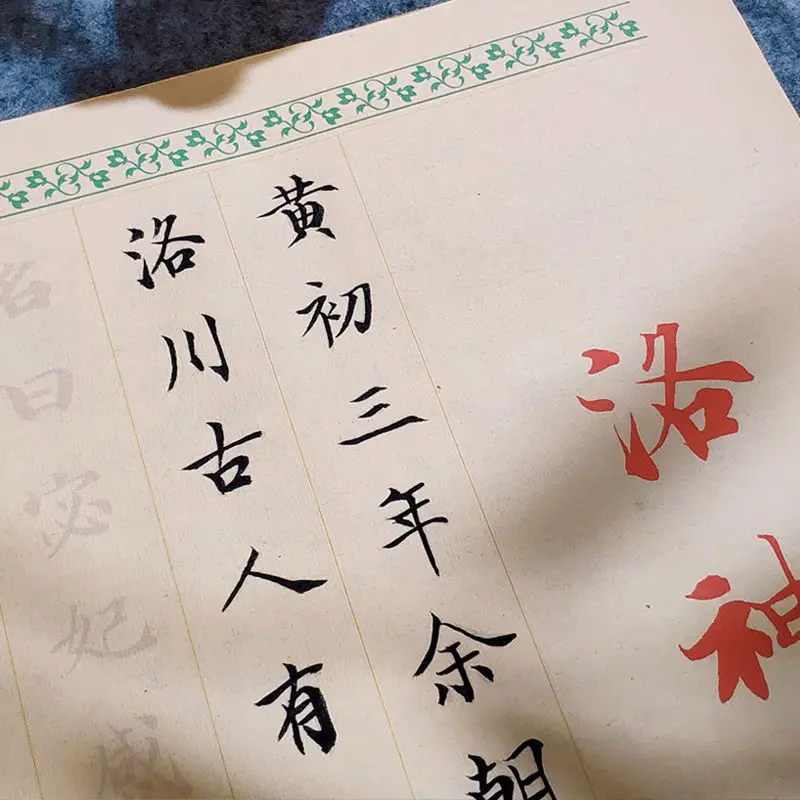 洛神
黄初三年余朝
洛川古人有
名曰宓妃感